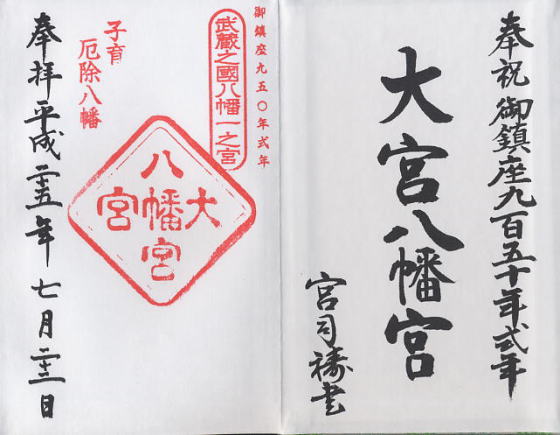 奉祝御鎮座九百五十年式年
大宮八幡宮
宮司禱書
御鎮座九五〇年式年
武蔵之國八幡一之宮
子育
厄除八幡
大宮
八幡宮
奉拝平成二十五年七月二十三日